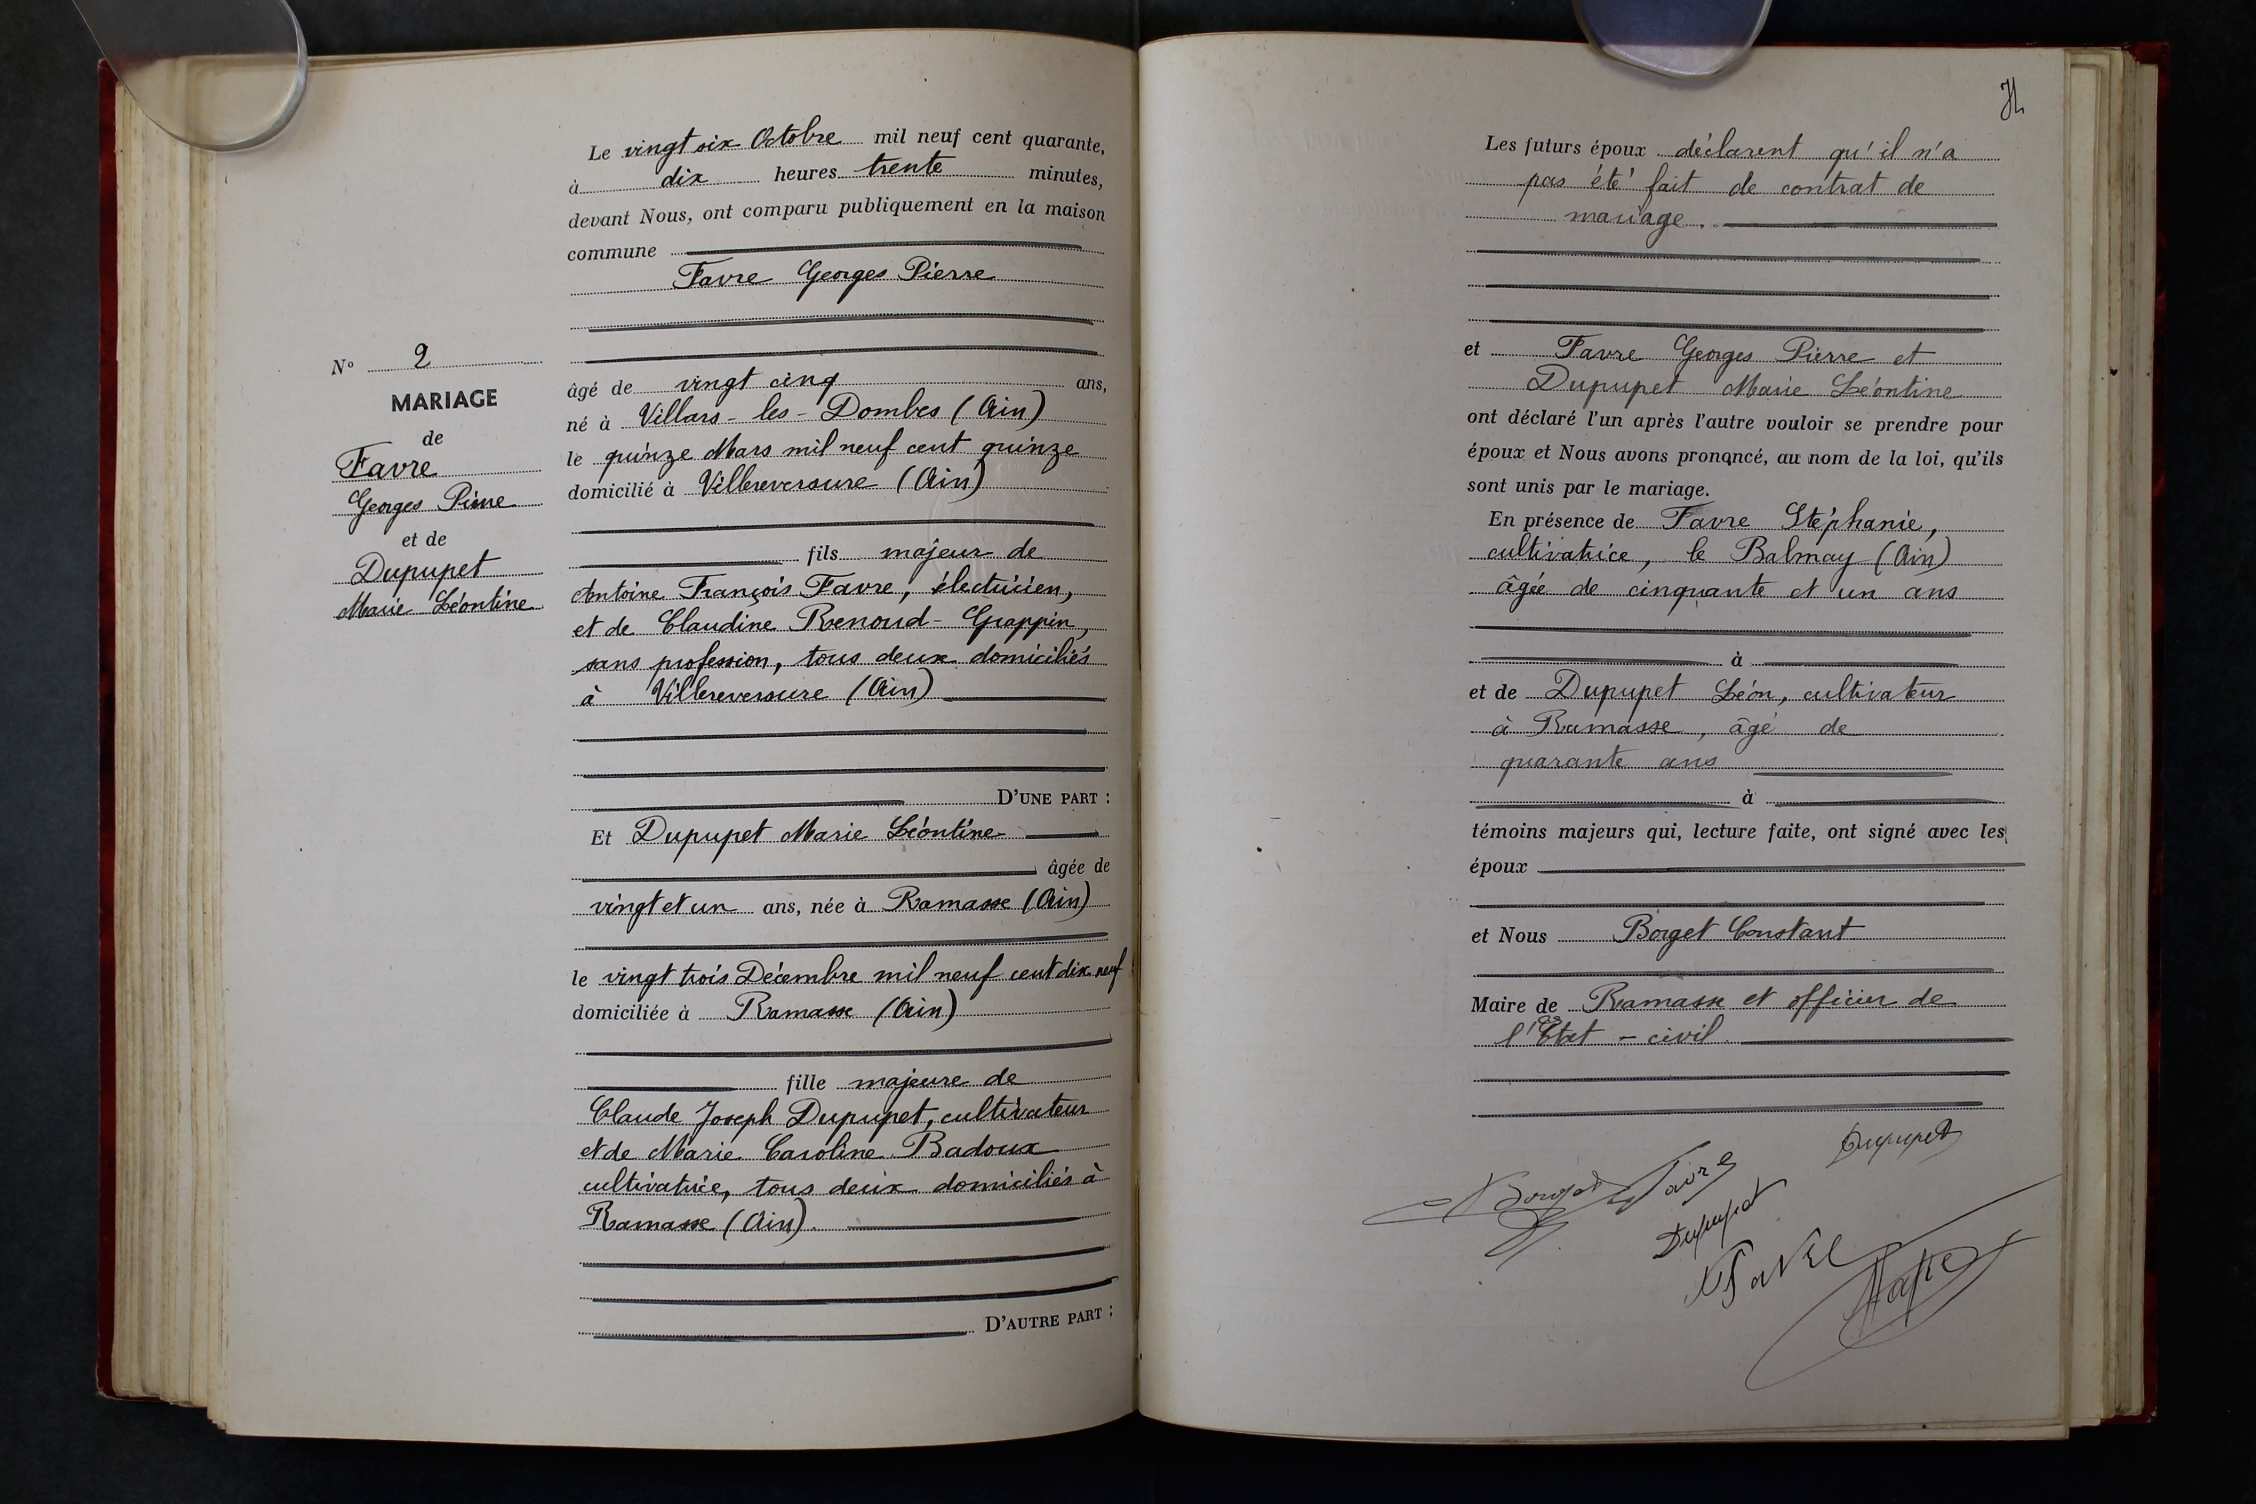 Le vingt six Octobre mil neuf cent quarante,
à dix heures trente minutes,
devant Nous, ont comparu publiquement en la maison
commune
Favre Georges Pierre
N° 2
MARIAGE
de
Favre
Georges Pierre
et de
Dupupet
Marie Léontine
âgé de vingt cinq ans,
né à Villars-les-Dombes (Ain)
le quinze Mars mil neuf cent quinze
domicilié à Villereversure (Ain)
fils majeur de
Antoine François Favre, électricien,
et de Claudine Renoud-Grappin,
sans profession, tous deux domiciliés
à Villereversure (Ain)
D'UNE PART :
Et Dupupet Marie Léontine
âgée de
vingt et un ans, née à Ramasse (Ain)
le vingt trois Décembre mil neuf cent dix neuf
domiciliée à Ramasse (Ain)
fille majeure de
Claude Joseph Dupupet, cultivateur
et de Marie Caroline Badoux
cultivatrice, tous deux domiciliés à
Ramasse (Ain).
D'AUTRE PART :
Les futurs époux déclarent qu'il n'a
pas été fait de contrat de
mariage.
et Favre Georges Pierre et
Dupupet Marie Léontine
ont déclaré l'un après l'autre vouloir se prendre pour
époux et Nous avons prononcé, au nom de la loi, qu'ils
sont unis par le mariage.
En présence de Favre Stéphanie,
cultivatrice, le Balmay (Ain)
âgée de cinquante et un ans
à
et de Dupupet Léon, cultivateur
à Ramasse, âgé de
quarante ans
à
témoins majeurs qui, lecture faite, ont signé avec les
époux
et Nous Borget Constant
Maire de Ramasse et officier de
l'Etat-civil.
Dupupet
Borget Favre
Dupupet
Favre